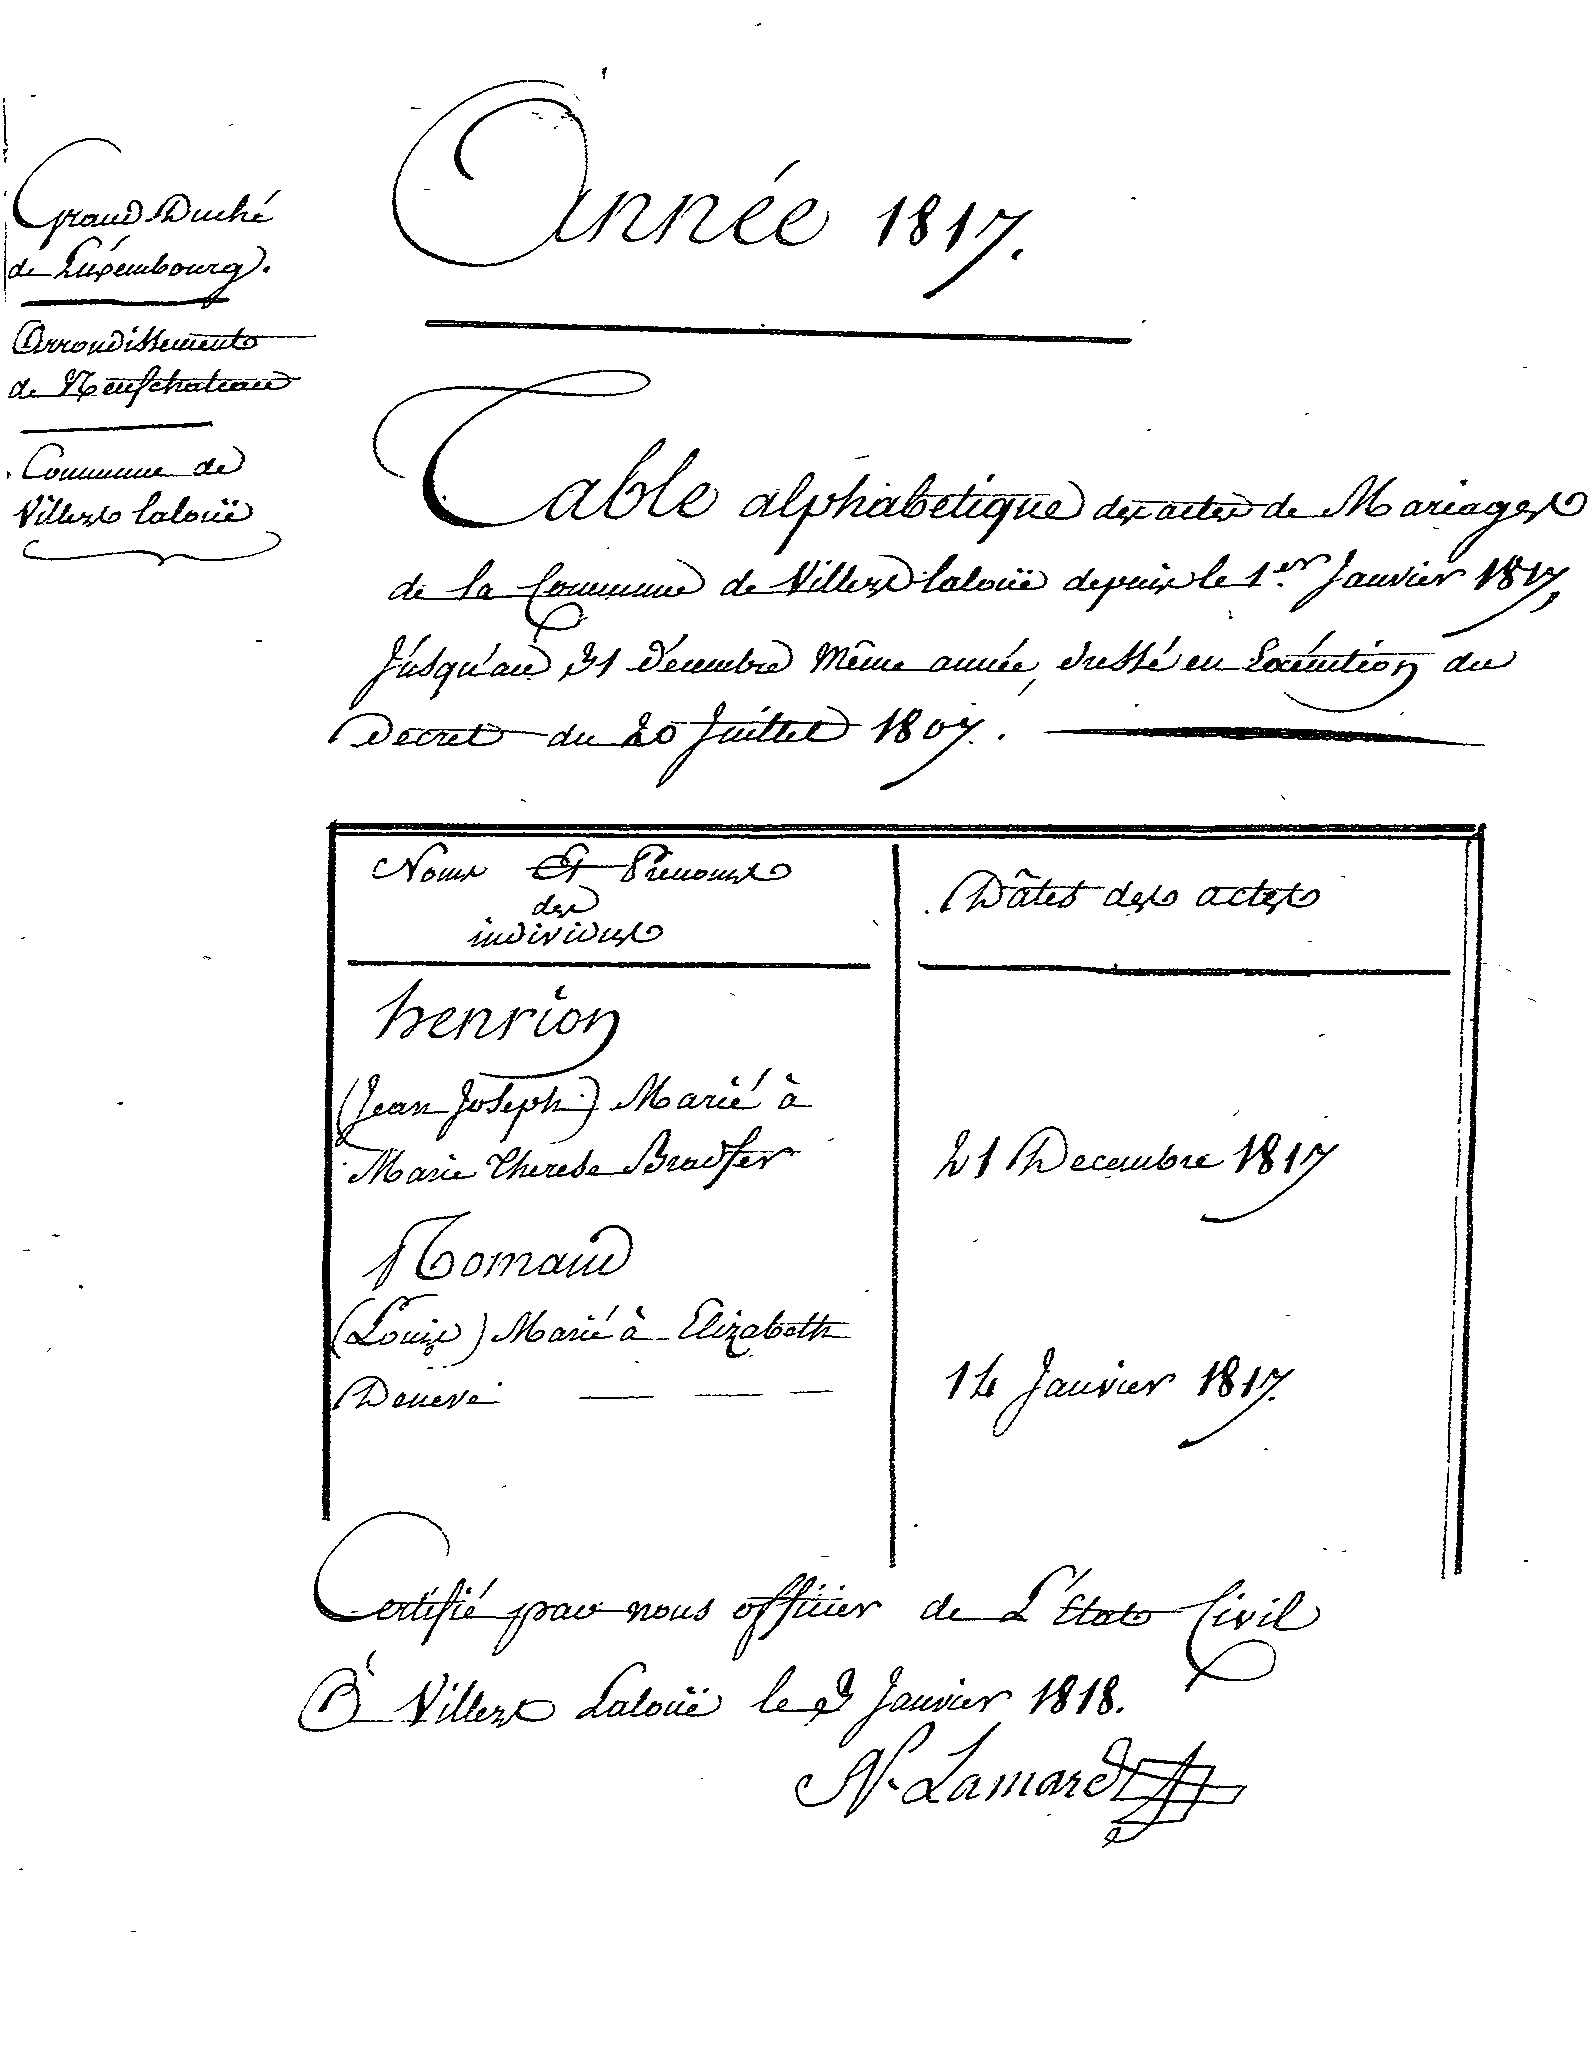 Grand Duché
de Luxembourg.
Arrondissement
de Neufchateau
Commune de
Villers laloüe
Année 1817.
Table alphabetique des actes de Mariages
de la Commune de Villers laloüe depuis le 1.er Janvier 1817,
Jusqu'au 31 Décembre Même année, dressé en Exécution du
Decret du 20 Juillet 1807.
Noms Et Prenoms
des
individus
Dâtes des actes
henrion
(Jean Joseph) Marié à
Marie Therese Bradfer
21 Decembre 1817
Nomaud
(Louis) Marié à Elizabeth
Deneve
14 Janvier 1817.
Certifié par nous officier de L'Etat Civil
à Villers Laloüe le Janvier 1818.
N. Lamard